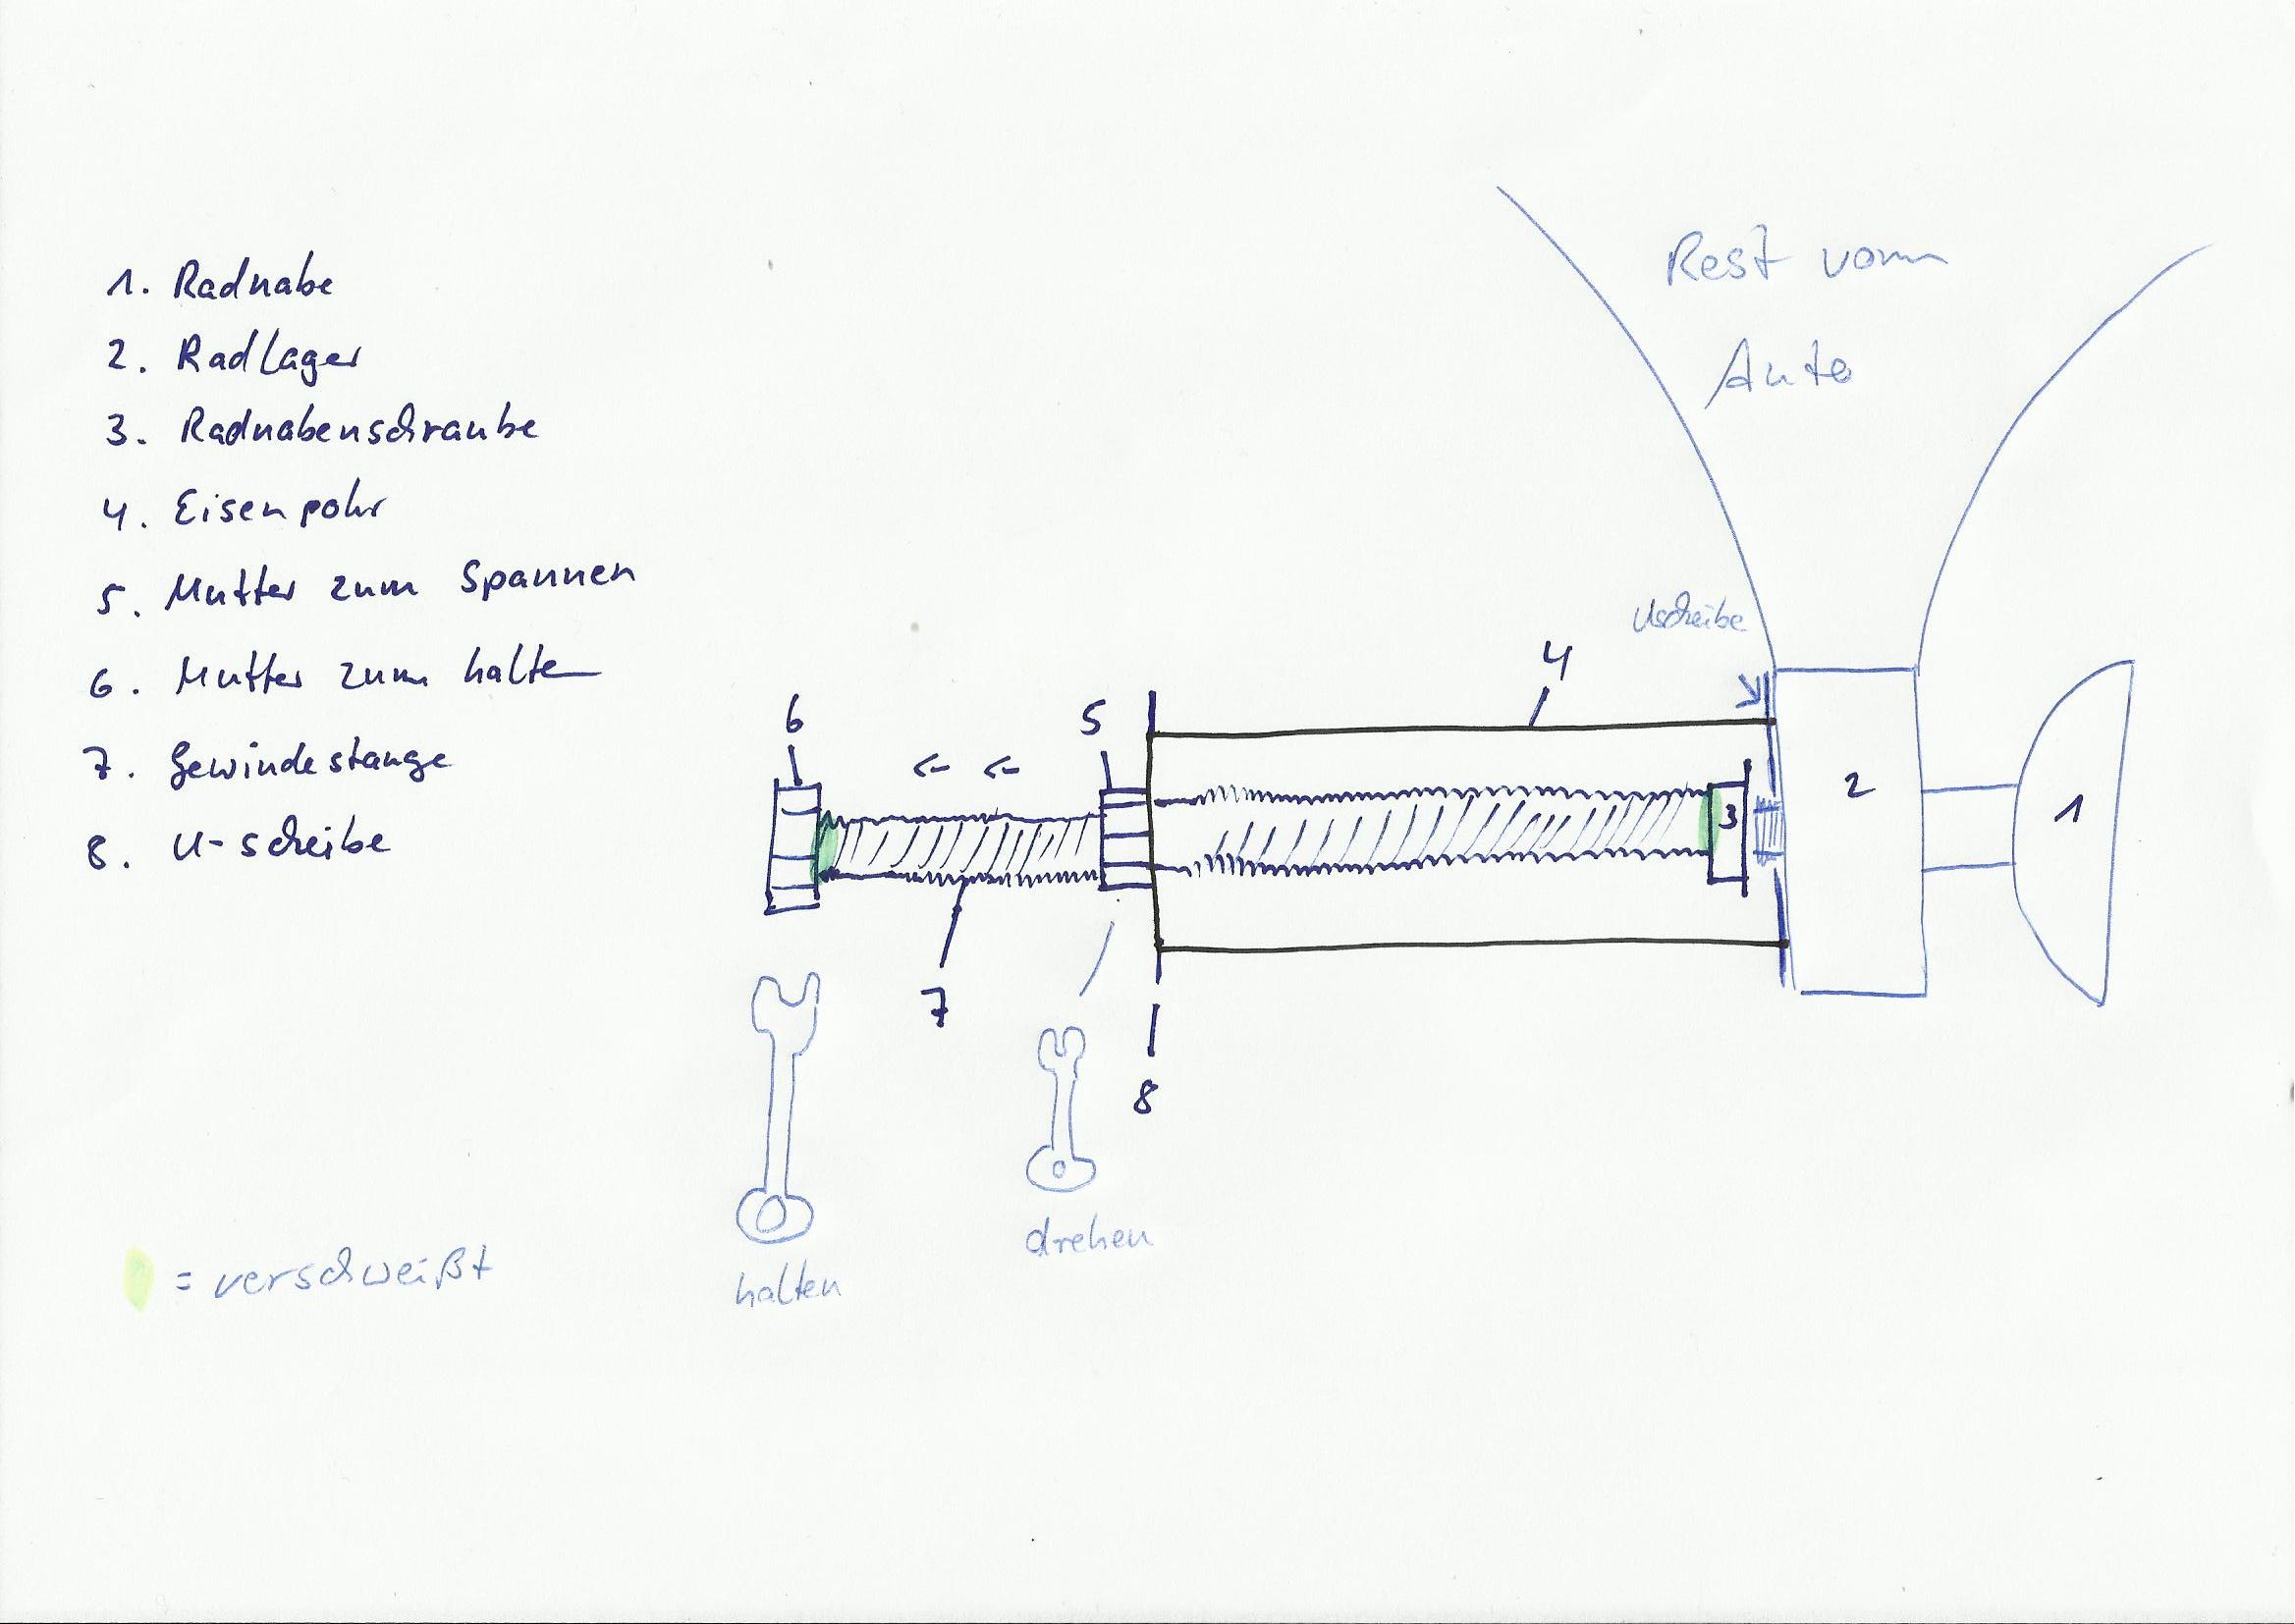 1. Radnabe
2. Radlager
3. Radnabenschraube
4. Eisenpohr
5. Mutter zum Spannen
6. Mutter zum halten
7. Gewindestange
8. U-scheibe
Rest vom
Auto
Uscheibe
4
6
5
3
2
1
7
8
halten
drehen
= verschweißt